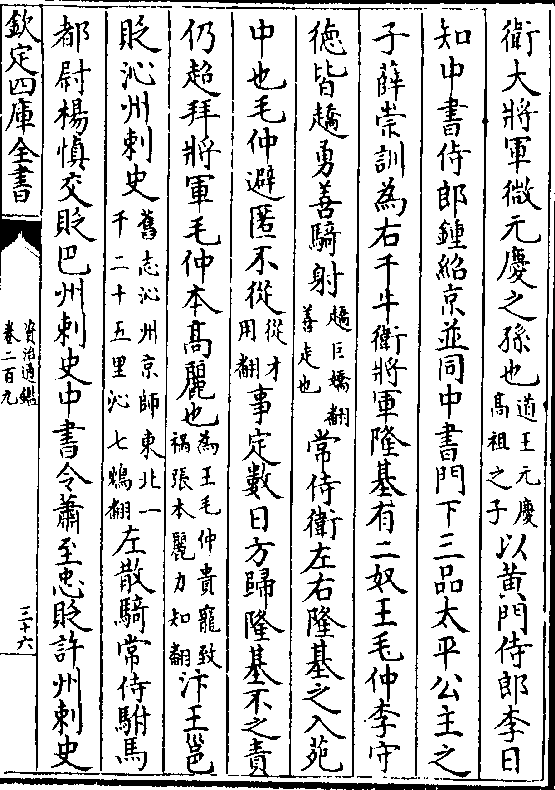 衛大將軍微元慶之孫也道王元慶高祖之子以黄門侍郎李日
知中書侍郎鍾紹京並同中書門下三品太平公主之
子薛崇訓為右千牛衛將軍隆基有二奴王毛仲李守
徳皆趫勇善騎射趫巨嬌翻善走也常侍衛左右隆基之入苑
中也毛仲避匿不從從才用翻事定數日方歸隆基不之責
仍超拜將軍毛仲本髙麗也為王毛仲貴寵致禍張本麗力知翻汴王邕
貶沁州刺史舊志沁州京師東北一千二十五里沁七鴆翻左散騎常侍駙馬
都尉楊慎交貶巴州刺史中書令蕭至忠貶許州刺史
欽定四庫全書
資治通鑑
卷二百九
三十六